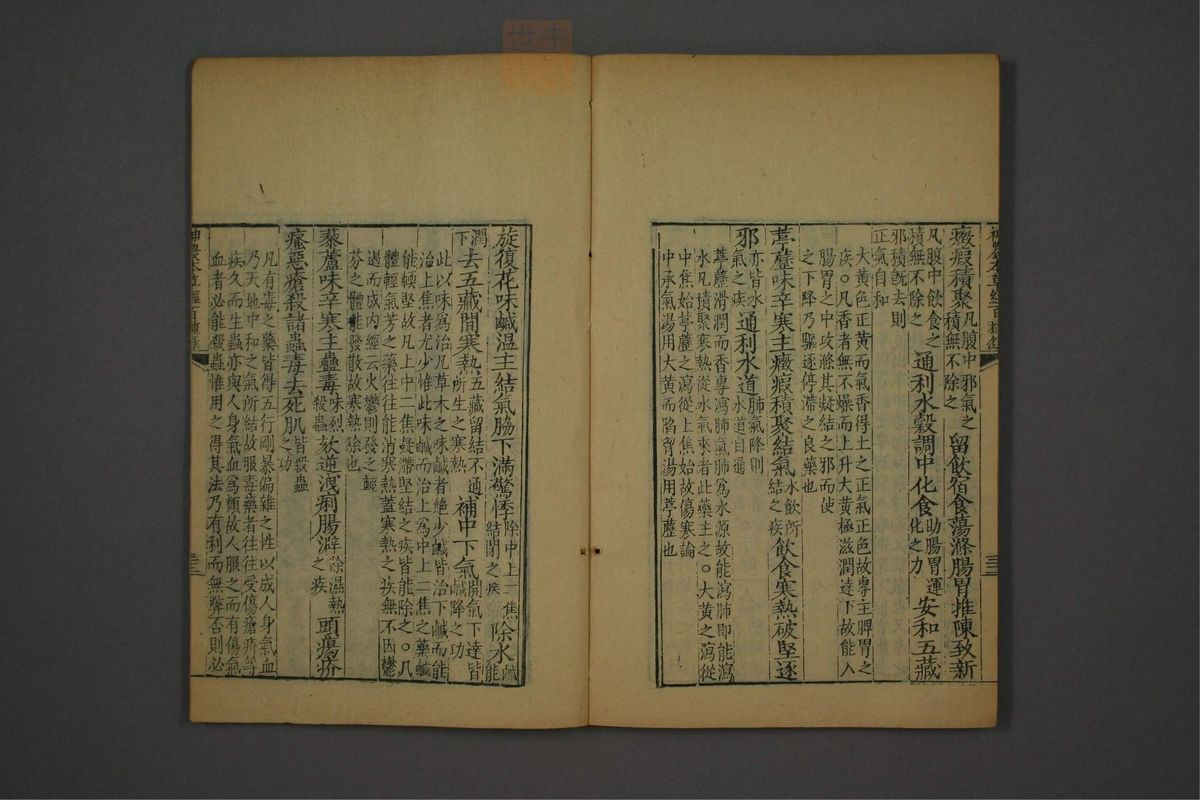 癥瘕積聚凡腹中邪氣之積無不除之留飲宿食蕩滌腸胃推陳致新
凡腹中飲食之積無不除之通利水穀調中化食助腸胃運化之力安和五藏
邪積旣去則正氣自和
大黃色正黃而氣香得土之正氣正色故專主脾胃之
疾○凡香者無不燥而上升大黃極滋潤達下故能入
腸胃之中攻滌其凝結之邪而使
之下降乃驅逐停滯之良藥也
葶藶味辛寒主癥瘕積聚結氣水飲所結之疾飲食寒熱破堅逐
邪亦皆水氣之疾通利水道肺氣降則水道自通
葶藶滑潤而香專瀉肺氣肺爲水源故能瀉肺即能瀉
水凡積聚寒熱從水氣來者此藥主之○大黃之瀉從
中焦始葶藶之瀉從上焦始故傷寒論
中承氣湯用大黃而陷胷湯用葶藶也
旋復花味鹹溫主結氣脇下滿驚悸除中上二焦結閉之疾除水鹹能
潤下去五藏間寒熱五藏留結不通所生之寒熱補中下氣開氣下達皆鹹降之功
此以味爲治凡草木之味鹹者絶少鹹皆治下鹹而能
治上焦者尤少惟此味鹹而治上爲中上二焦之藥鹹
能輭堅故凡上中二焦凝滯堅結之疾皆能除之○凡
體輕氣芳之藥往往能消寒熱蓋寒熱之疾無不因鬱
遏而成内經云火鬱則發之輕
芬之體能發散故寒熱除也
藜蘆味辛寒主蠱毒味烈殺蟲欬逆洩痢腸澼除濕熱之疾頭瘍疥
瘙惡瘡殺諸蟲毒去死肌皆殺蟲之功
凡有毒之藥皆得五行剛暴偏雜之性以成人身氣血
乃天地中和之氣所結故服毒藥者往往受傷瘡疥等
疾久而生蟲亦與人身氣血爲類故人服之而有傷氣
血者必能殺蟲惟用之得其法乃有利而無弊否則必